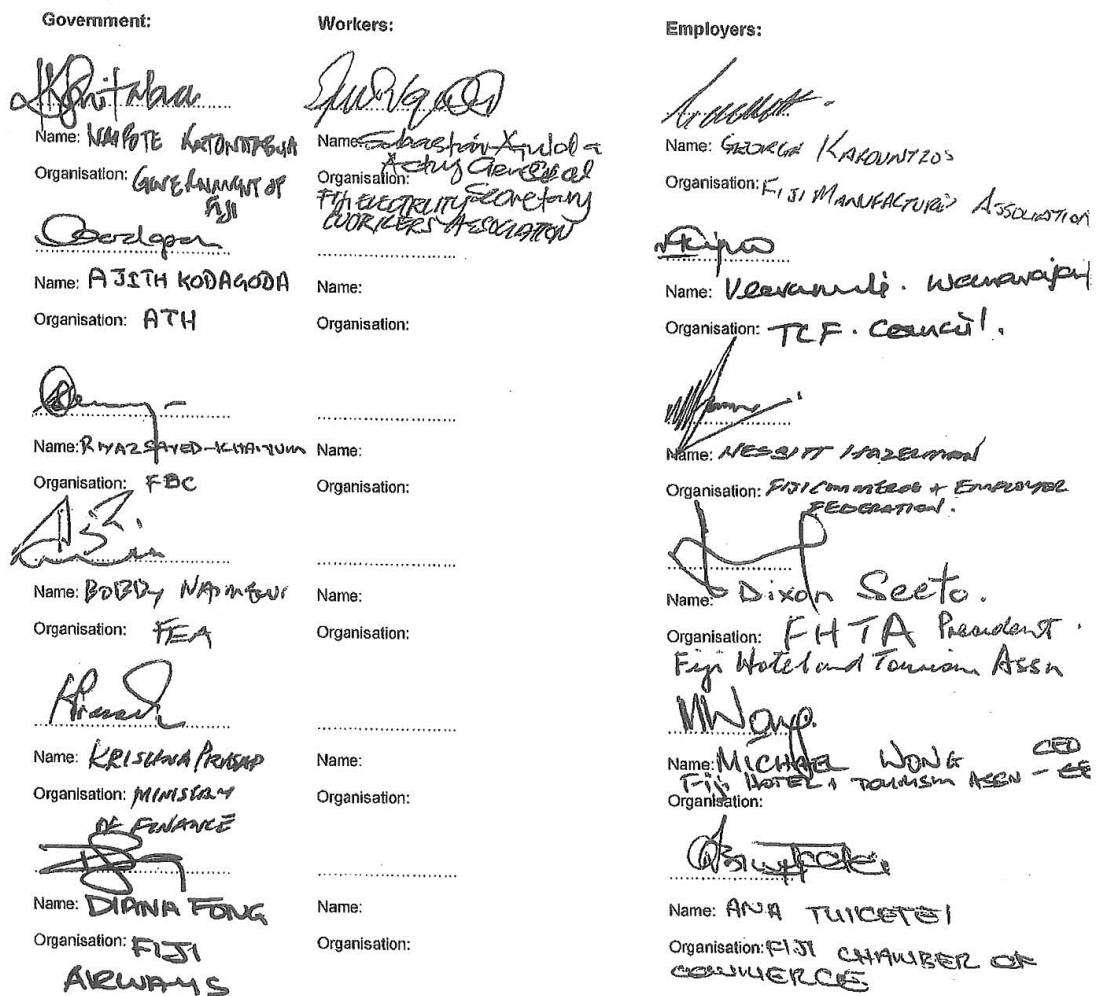 Government:
Name: NAIPOTE KATONITABUA
Organisation: GOVERNMENT OF
FIJI
Name: AJITH KODAGODA
Organisation: ATH
Name: RIYAZ SAYED-KHAIYUM
Organisation: FBC
Name: BOBBY
Organisation: FEA
Name: KRISHNA PRASAD
Organisation: MINISTRY
OF FINANCE
Name: DIANA FONG
Organisation: FIJI
AIRWAYS
Workers:
Name: Sebastian
Acting General
Organisation: Secretary
FIJI ELECTRICITY
WORKERS ASSOCIATION
Name:
Organisation:
Name:
Organisation:
Name:
Organisation:
Name:
Organisation:
Name:
Organisation:
Employers:
Name: GEORGE KAROUNTZOS
Organisation: FIJI ASSOCIATION
Name:
Organisation: TCF. Council.
Name: NESBITT HAZELMAN
Organisation: FIJI COMMERCE + EMPLOYER
FEDERATION.
Name: Dixon Seeto.
Organisation: FHTA President.
Fiji Hotel and Tourism Assn
MWong.
Name: MICHAEL WONG CEO
Fiji HOTEL + TOURISM ASSN
Organisation:
Name: ANA TUICETEI
Organisation: FIJI CHAMBER OF
COMMERCE